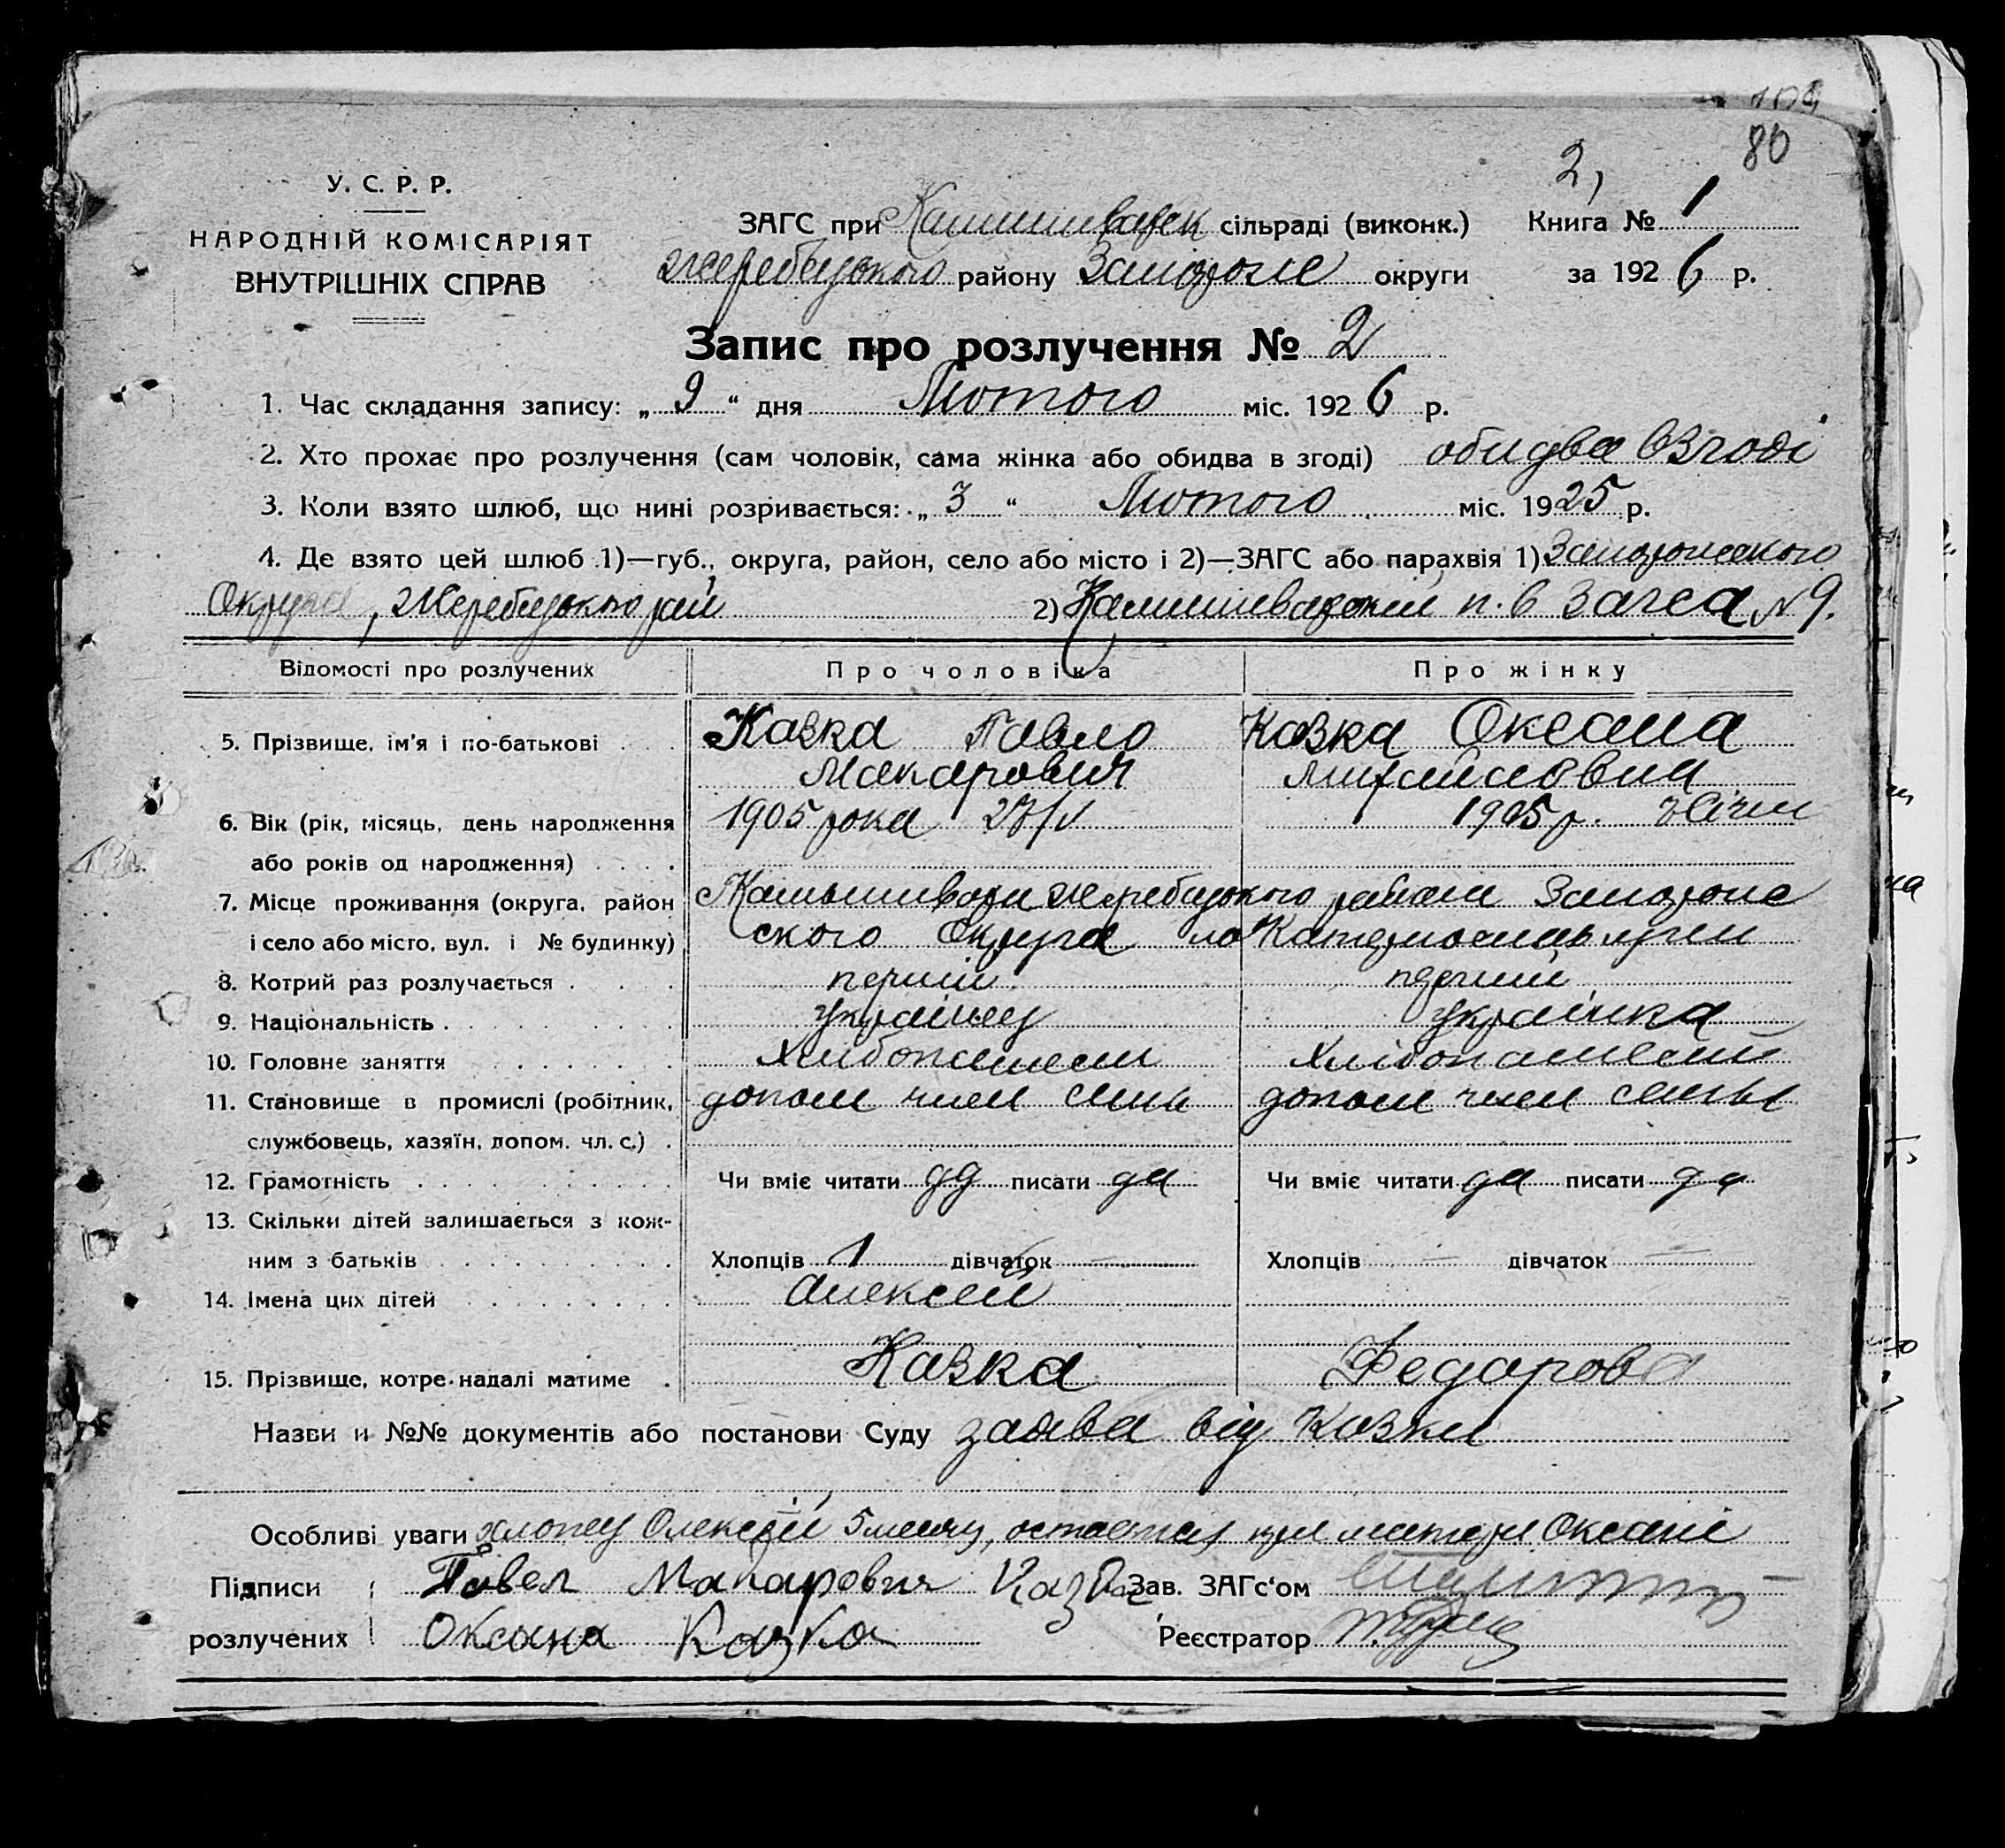 80
2,
У. С. Р. Р.
НАРОДНІЙ КОМІСАРІЯТ
ВНУТРІШНІХ СПРАВ
ЗАГС при сільраді (виконк.) Книга № 1
Жеребецького району Запорож округи за 1926 р.
Запис про розлучення № 2
1. Час складання запису: „ 9 “ дня Лютого міс. 1926 р.
2. Хто прохає про розлучення (сам чоловік, сама жінка або обидва в згоді) обидва взгоді
3. Коли взято шлюб, що нині розривається: „ 3 “ Лютого міс. 1925 р.
4. Де взято цей шлюб 1)—губ., округа, район, село або місто і 2)—ЗАГС або парахвія 1) Запорожского
Округа, Жеребецького рай 2) п. в Загса №9.
Відомості про розлучених Про чоловіка Про жінку
5. Прізвище, ім'я і по-батькові Казка Павло Казка Оксана
Макарович Михайловна
6. Вік (рік, місяць, день народження 1905 рока 1905 р.
або років од народження)
7. Місце проживання (округа, район Жеребецького району Запорож
і село або місто, вул. і № будинку) ского Округа по
8. Котрий раз розлучається перший перший
9. Національність українец українка
10. Головне заняття Хлібопашест Хлібопашест
11. Становище в промислі (робітник, допом член семьи допом член семьи
службовець, хазяїн, допом. чл. с.)
12. Грамотність Чи вміє читати да писати да Чи вміє читати да писати да
13. Скільки дітей залишається з кож-
ним з батьків Хлопців 1 дівчаток — Хлопців — дівчаток —
14. Імена цих дітей Алексей
15. Прізвище, котре надалі матиме Казка Федарова
Назви и №№ документів або постанови Суду заява від Казки
Особливі уваги хлопец Олексій 5 месяц, остается при матери Оксані
Підписи Павел Макарович Казка Зав. ЗАГс‘ом
розлучених Оксана Казка Реєстратор